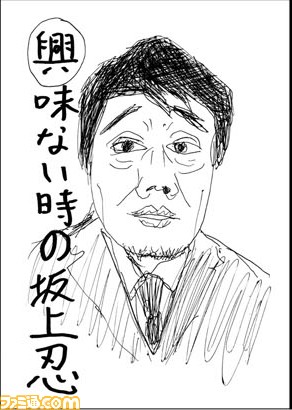 興味ない時の坂上忍
ファミ通com